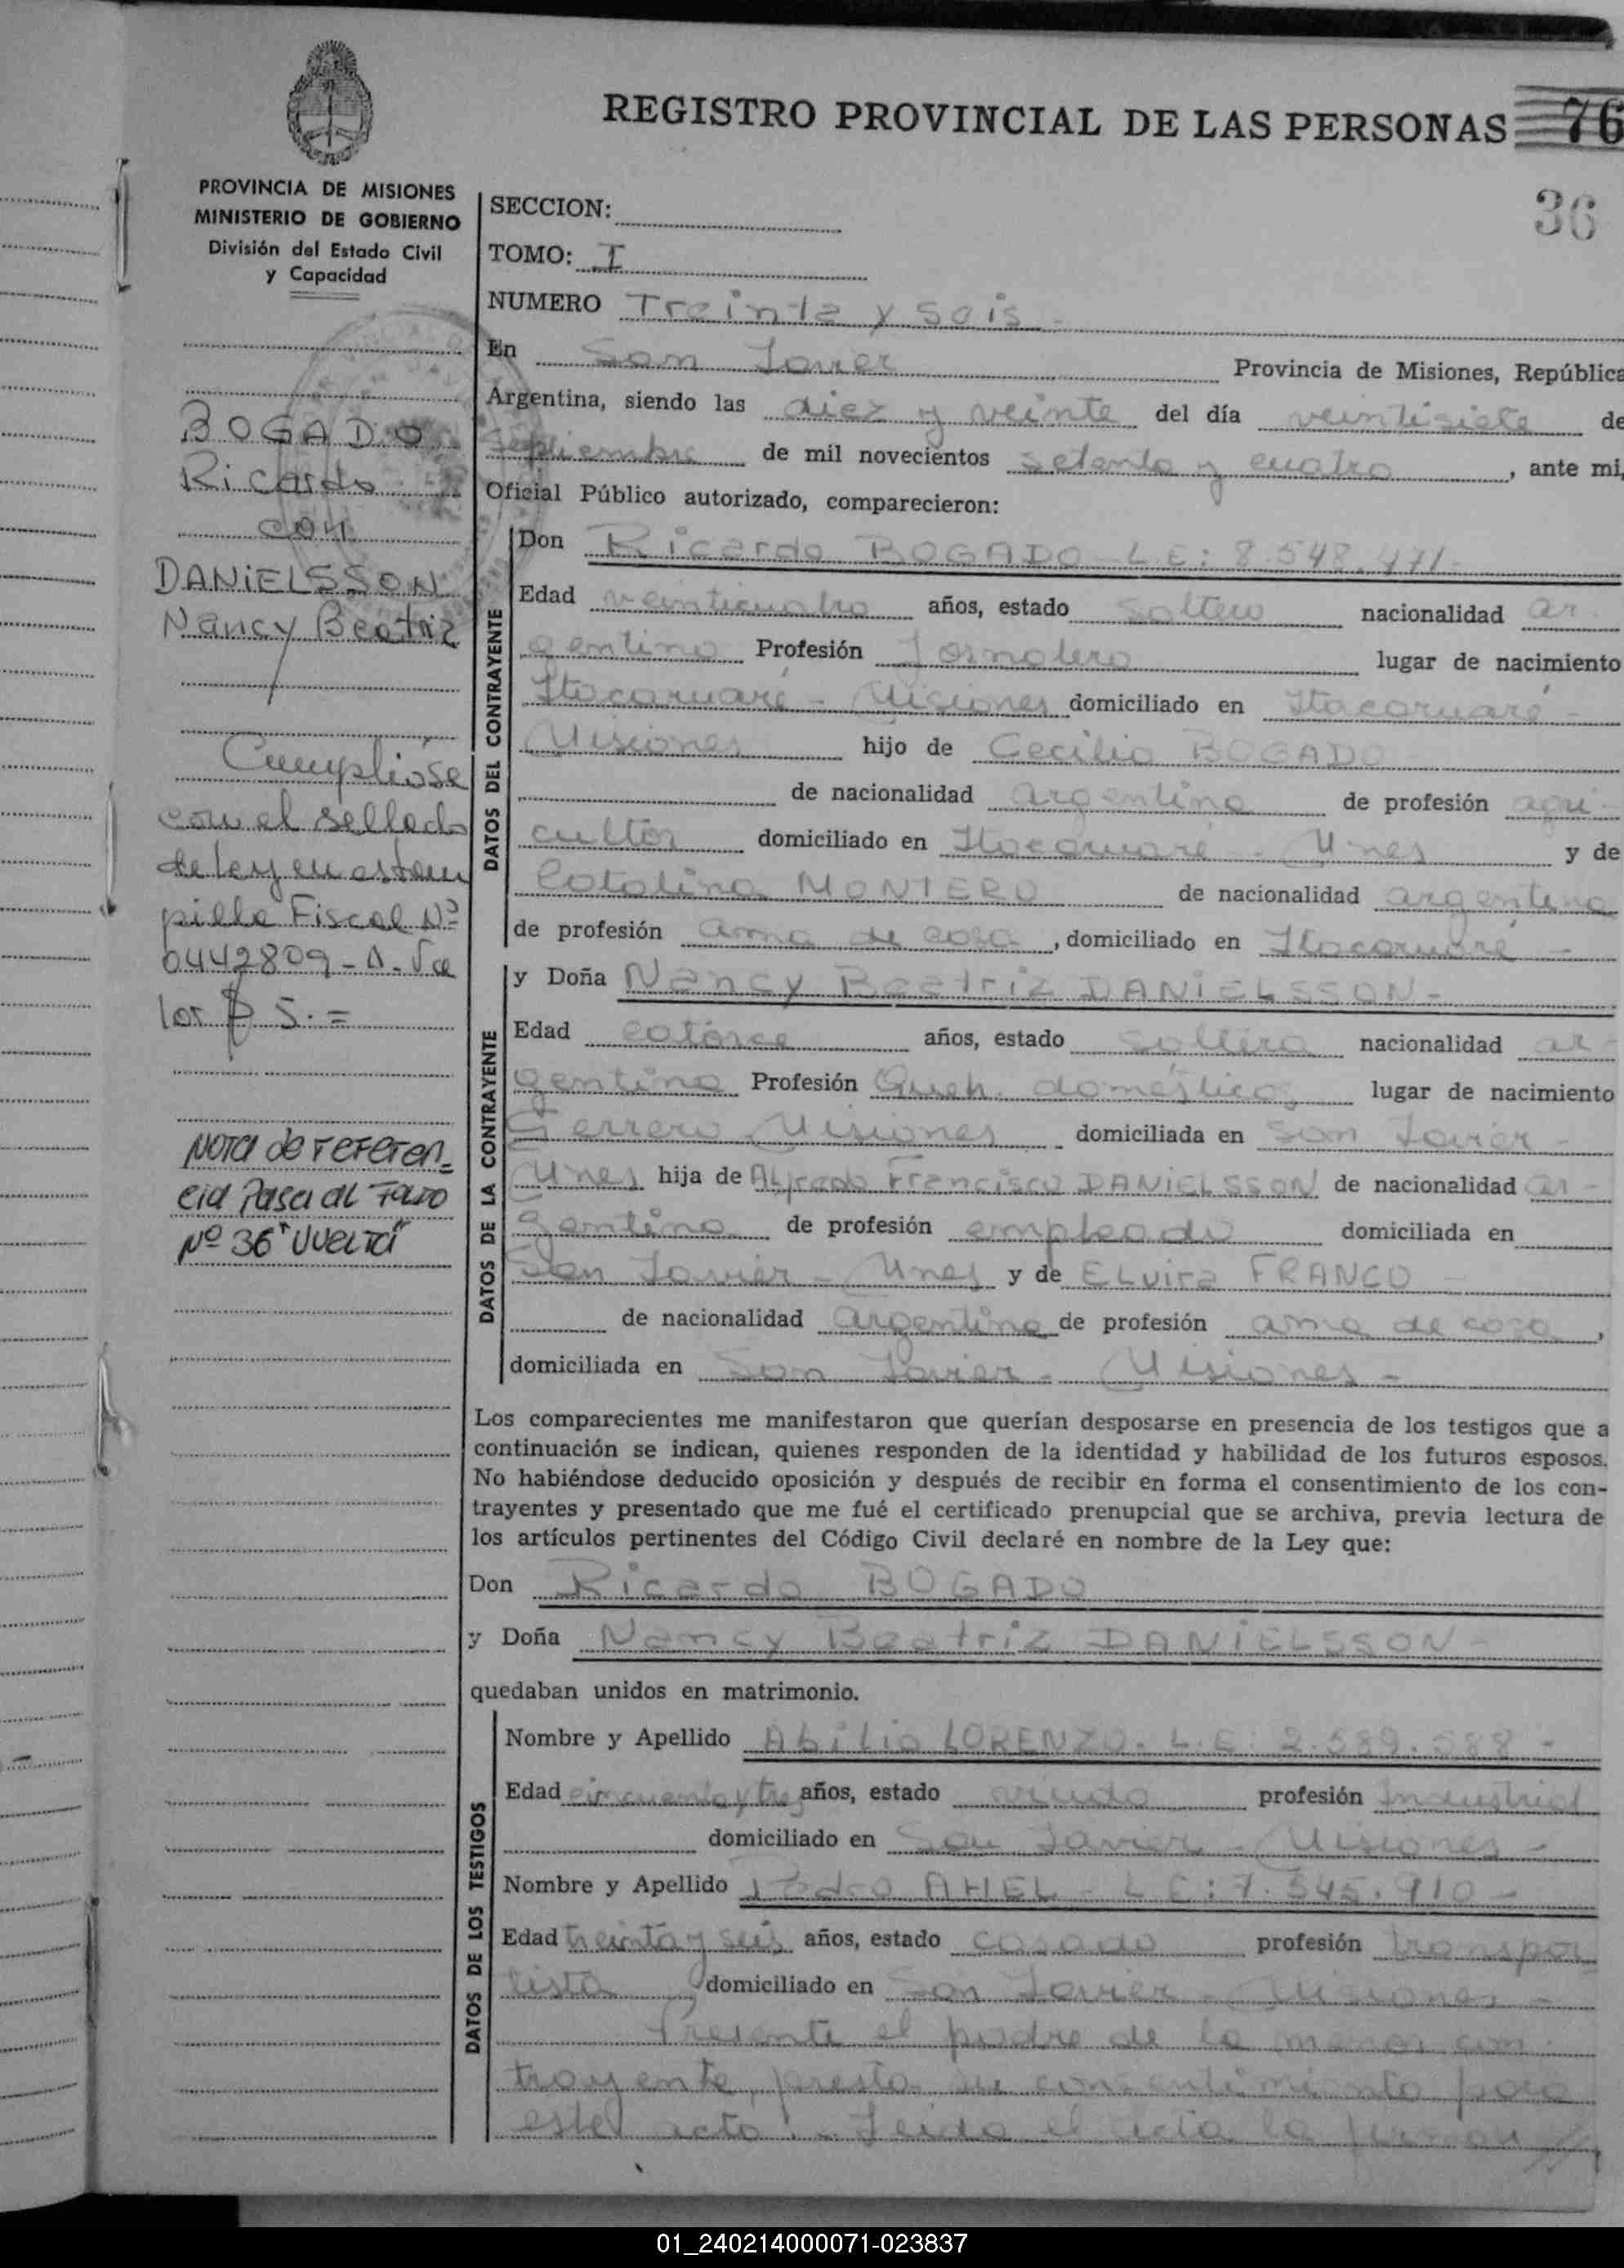 REGISTRO PROVINCIAL DE LAS PERSONAS 76
36
PROVINCIA DE MISIONES
MINISTERIO DE GOBIERNO
División del Estado Civil
y Capacidad
BOGADO
Ricardo
con
DANIELSSON
Nancy Beatriz
Cumplióse
con el sellado
de ley en estam
pilla Fiscal Nº
0442809-A-Va
lor $ 5.=
Nota de referen-
cia Pasa al Folio
Nº 36 "vuelta"
SECCION:
TOMO: I
NUMERO Treinta y seis -
En San Javier Provincia de Misiones, República
Argentina, siendo las diez y veinte del día veintisiete de
septiembre de mil novecientos setenta y cuatro, ante mi,
Oficial Público autorizado, comparecieron:
DATOS DEL CONTRAYENTE
Don Ricardo BOGADO L.E: 8.548.471-
Edad veinticuatro años, estado soltero nacionalidad ar
gentino Profesión Jornalero lugar de nacimiento
Itacaruaré - Misiones domiciliado en Itacaruaré -
Misiones hijo de Cecilio BOGADO
de nacionalidad argentina de profesión agri-
cultor domiciliado en Itacaruaré - Mnes y de
Catalina MONTERO de nacionalidad argentina
de profesión ama de casa, domiciliado en Itacaruaré -
DATOS DE LA CONTRAYENTE
y Doña Nancy Beatriz DANIELSSON-
Edad catorce años, estado soltera nacionalidad ar-
gentina Profesión Queh. domésticos lugar de nacimiento
Gerrero Misiones - domiciliada en San Javier -
Mnes hija de Alfredo Francisco DANIELSSON de nacionalidad ar-
gentino de profesión empleado domiciliada en
San Javier - Mnes y de Elvira FRANCO -
de nacionalidad argentina de profesión ama de casa,
domiciliada en San Javier - Misiones -
Los comparecientes me manifestaron que querían desposarse en presencia de los testigos que a
continuación se indican, quienes responden de la identidad y habilidad de los futuros esposos.
No habiéndose deducido oposición y después de recibir en forma el consentimiento de los con-
trayentes y presentado que me fué el certificado prenupcial que se archiva, previa lectura de
los artículos pertinentes del Código Civil declaré en nombre de la Ley que:
Don Ricardo BOGADO
y Doña Nancy Beatriz DANIELSSON -
quedaban unidos en matrimonio.
DATOS DE LOS TESTIGOS
Nombre y Apellido Abilio LORENZO. L.E: 2.589.588 -
Edad cincuenta y tres años, estado viudo profesión Industrial
domiciliado en San Javier - Misiones -
Nombre y Apellido Pedro AHEL - L.E: 7.545.910 -
Edad treinta y seis años, estado casado profesión transpor
tista domiciliado en San Javier - Misiones -
Presente el padre de la menor con
trayente, presta su consentimiento para
este acto. - Leida el acta la firman//
01_240214000071-023837